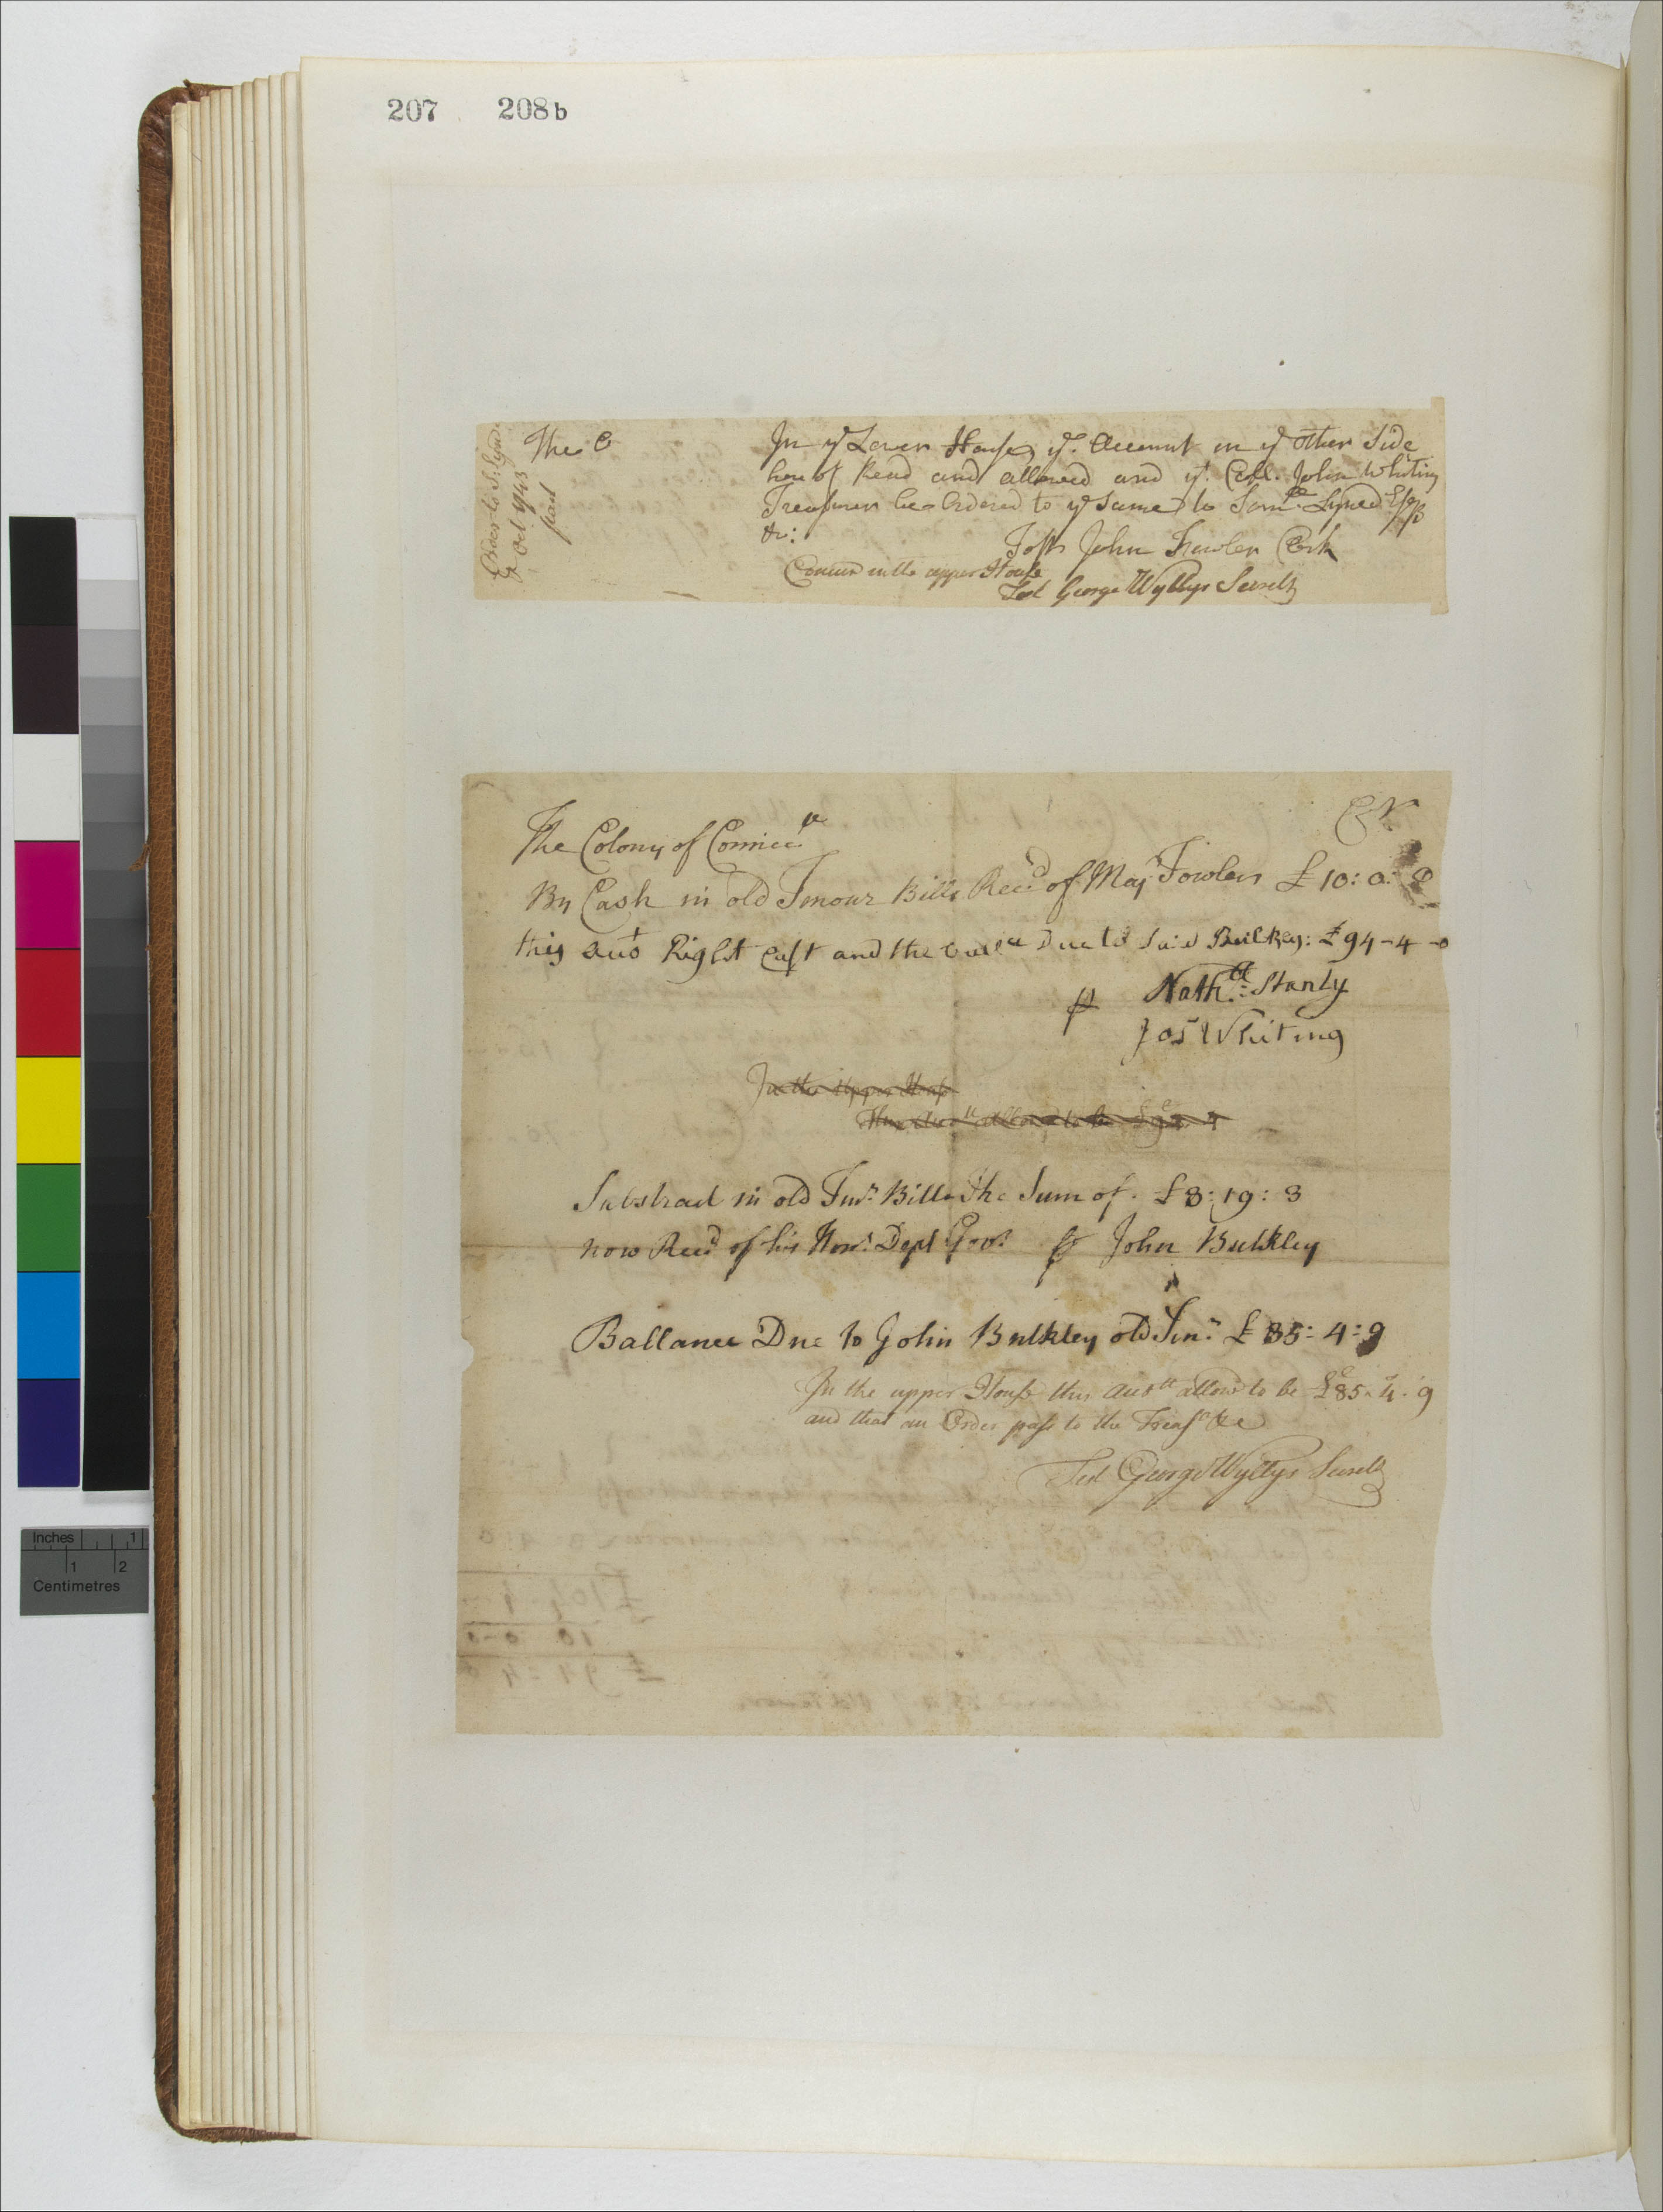 207 208b
Order to S: Lynd
Oct 1743
paid
The C
In yͤ Lower House yͤ Account on yͤ other Side
hereof Read and allowed and yͭ Coll. John Whiting
Treasurer be Ordered to yͤ same to Samˡˡ Lyned Esqʳ
&c:
Testr John Fowler Clerk
Concurd in the upper House
Test George Wyllys Secretʸ
Cr
The Colony of Connecᵗ
By Cash in old Tenour Bills Recᵈ of Majʳ Fowler £ 10: 0: 0
this accᵗ Right Cast and the Due to said Bulkley: £94-4-0
ꝑ Nathˡˡ: Stanly
Jos Whiting
In the Upper House
This Accᵗᵗ allowed to be £
Substract in old Tenʳ Bills The Sum of £8: 19: 3
now Recᵈ of his Honʳ Dept Govʳ ꝑ John Bulkley
Ballance Due to John Bulkley old Tenʳ £ 85: 4: 9
In the upper House this Accᵗᵗ allowd to be £85. 4. 9
and that an Order pass to the Treasʳ &c
Test George Wyllys Secretʸ
£104 4
10 0-0
£ 94-4
Inches 1
1 2
Centimetres